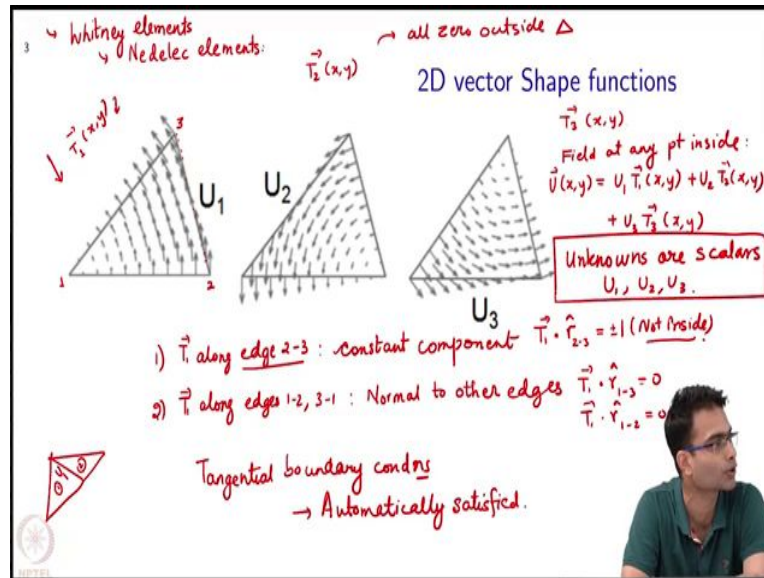 3
↳ Whitney elements
↳ Nedelec elements:
T₂(x,y)
→ all zero outside Δ
2D vector Shape functions
T₁(x,y)
3
U₁
1
2
U₂
U₃
T₃(x,y)
Field at any pt inside:
U(x,y) = U₁ T₁(x,y) + U₂ T₂(x,y)
+ U₃ T₃(x,y)
Unknowns are scalars
U₁, U₂, U₃.
1) T₁ along edge 2-3 : constant component T₁ · r̂₂₋₃ = ±1 (Not inside)
2) T₁ along edges 1-2, 3-1 : Normal to other edges T₁ · r̂₁₋₃ = 0
T₁ · r̂₁₋₂ = 0
Tangential boundary condns
→ Automatically satisfied.
NPTEL